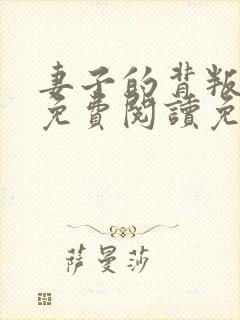 妻子的背叛
免費閱讀免
萨曼莎